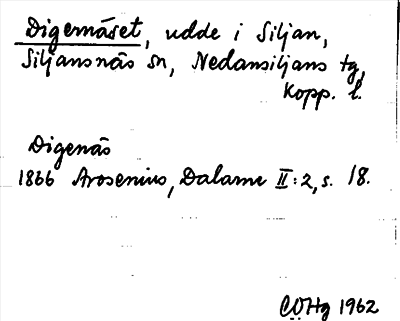 Digernäset, udde i Siljan,
Siljansnäs sn, Nedansiljans tg,
Kopp. l.
Digenäs
1866 Arosenius, Dalarne II:2, s. 18.
COHg 1962